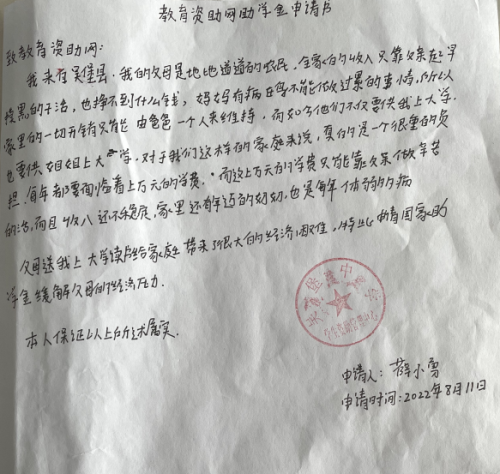 教育资助网助学金申请书
致教育资助网：
我来自吴堡县．我的父母是地地道道的农民，全家的收入只靠父亲起早
投黑的干活，也挣不到什么钱，妈妈有病在身不能做过累的事情，所以
家里的一切开销只能由爸爸一个人来维持，而如今他们不仅要供我上大学．
也要供姐姐上大学，对于我们这样的家庭来说，真的是一个很重的负
担．每年都要面临着上万元的学费．而这上万元的学费只能靠父亲做辛苦
的活，而且收入还不稳定，家里还有年迈的奶奶，也是年体弱多病
父母送我上大学读书给家庭带来了很大的经济困难，特此申请国家助
学金缓解父母的经济压力．
本人保证以上所述属实．
申请人：薛小雪
申请时间：2022年8月11日